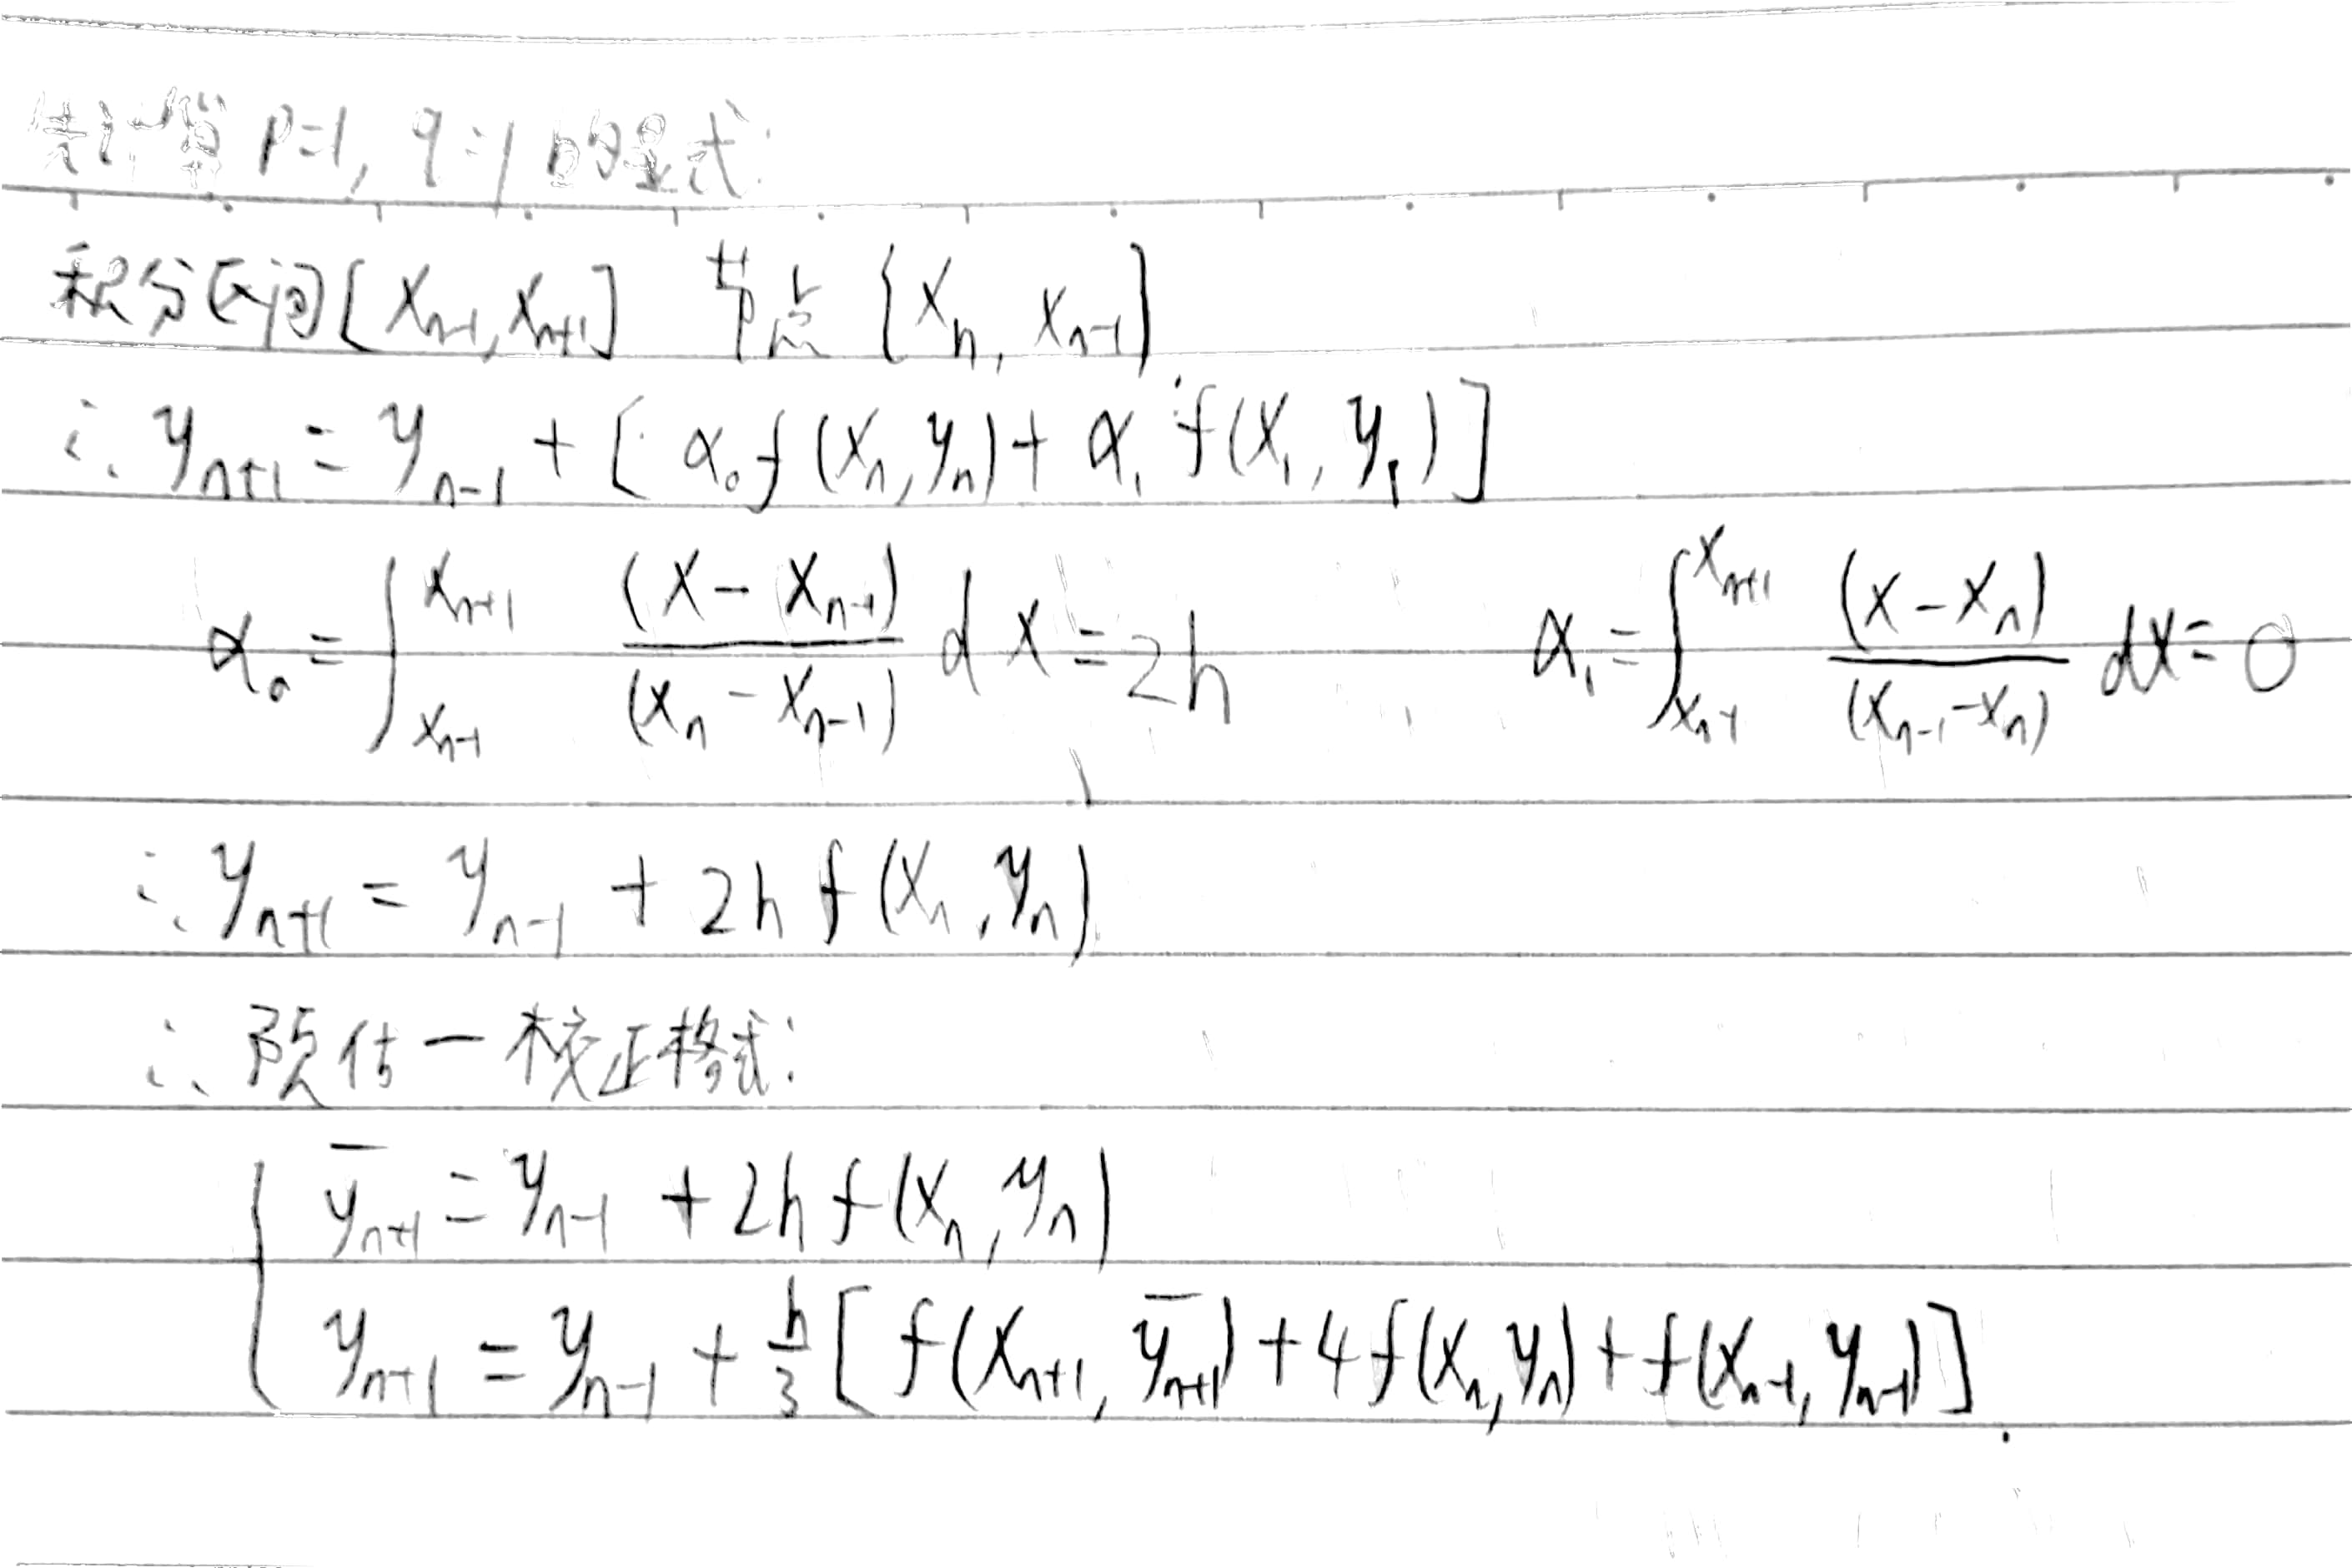 先计算 p=1, q=1 的显式:
积分区间[x_{n-1}, x_{n+1}] 节点 {x_n, x_{n-1}]
∴ y_{n+1} = y_{n-1} + [α_0 f(x_n, y_n) + α_1 f(x_1, y_1)]
α_0 = ∫_{x_{n-1}}^{x_{n+1}} (x - x_{n-1})/(x_n - x_{n-1}) dx = 2h α_1 = ∫_{x_{n-1}}^{x_{n+1}} (x - x_n)/(x_{n-1} - x_n) dx = 0
∴ y_{n+1} = y_{n-1} + 2h f(x_n, y_n)
∴ 预估-校正格式:
{ ȳ_{n+1} = y_{n-1} + 2h f(x_n, y_n)
y_{n+1} = y_{n-1} + h/3 [f(x_{n+1}, ȳ_{n+1}) + 4f(x_n, y_n) + f(x_{n-1}, y_{n-1})]